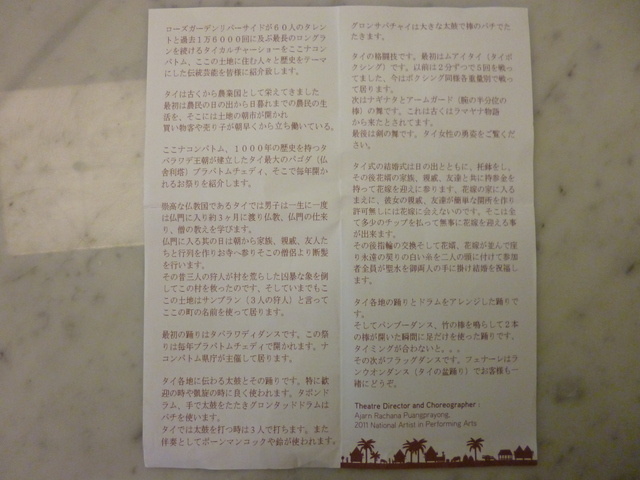 ローズガーデンリバーサイドが60人のタレン
トと過去1万6000回に及ぶ最長のロングラ
ンを続けるタイカルチャーショーをここナコン
パトム、ここの土地に住む人々と歴史をテーマ
にした伝統芸能を皆様に紹介致します。
タイは古くから農業国として栄えてきました
最初は農民の日の出から日暮れまでの農民の生
活を、そこには土地の朝市が開かれ
買い物客や売り子が朝早くから立ち働いている。
ここナコンパトム、1000年の歴史を持つタ
バラワデ王朝が建立したタイ最大のパゴダ(仏
舎利塔)プラパトムチェディ、そこで毎年開か
れるお祭りを紹介します。
崇高な仏教国であるタイでは男子は一生に一度
は仏門に入り約3ヶ月に渡り仏教、仏門の仕来
り、僧の教えを学びます。
仏門に入る其の日は朝から家族、親戚、友人た
ちと行列を作りお寺へ参りそこの僧侶より断髪
を行います。
その昔三人の狩人が村を荒らした凶暴な象を倒
してこの村を救ったのです、そしていまでもこ
この土地はサンプラン(3人の狩人)と言って
ここの町の名前を使って居ります。
最初の踊りはタバラワディダンスです、この祭
りは毎年プラパトムチェディで開かれます、ナ
コンパトム県庁が主催して居ります。
タイ各地に伝わる太鼓とその踊りです、特に歓
迎の時や凱旋の時に良く使われます。タポンド
ラム、手で太鼓をたたきグロンタッドドラムは
バチを使います。
タイでは太鼓を打つ時は3人で打ちます。また
伴奏としてボーンマンコックや鈴が使われます。
グロンサバチャイは大きな太鼓で棒のバチでた
たきます。
タイの格闘技です。最初はムアイタイ(タイボ
クシング)です。以前は2分ずつで5回を戦っ
てました、今はボクシング同様各重量別で戦っ
て居ります。
次はナギナタとアームガード(腕の半分位の
棒)の舞です、これは古くはラマヤナ物語
から来たとされてます。
最後は剣の舞です。タイ女性の勇姿をご覧くだ
さい。
タイ式の結婚式は日の出とともに、托鉢をし、
その後花婿の家族、親戚、友達と共に持参金を
持って花嫁を迎えに参ります、花嫁の家に入る
まえに、彼女の親戚、友達が簡単な関所を作り
許可無しには花嫁に会えないのです、そこは全
て多少のチップを払って無事に花嫁を迎える事
が出来ます。
その後指輪の交換そして花婿、花嫁が並んで座
り永遠の契りの白い糸を二人の頭に付けて参加
者全員が聖水を御両人の手に掛け結婚を祝福し
ます。
タイ各地の踊りとドラムをアレンジした踊りで
す。
そしてバンブーダンス、竹の棒を鳴らして2本
の棒が開いた瞬間に足だけを使った踊りです、
タイミングが合わないと。。。
その次がフラッグダンスです、フェナーレはラ
ンウオンダンス(タイの盆踊り)でお客様も一
緒にどうぞ。
Theatre Director and Choreographer :
Ajarn Rachana Puangprayong,
2011 National Artist in Performing Arts